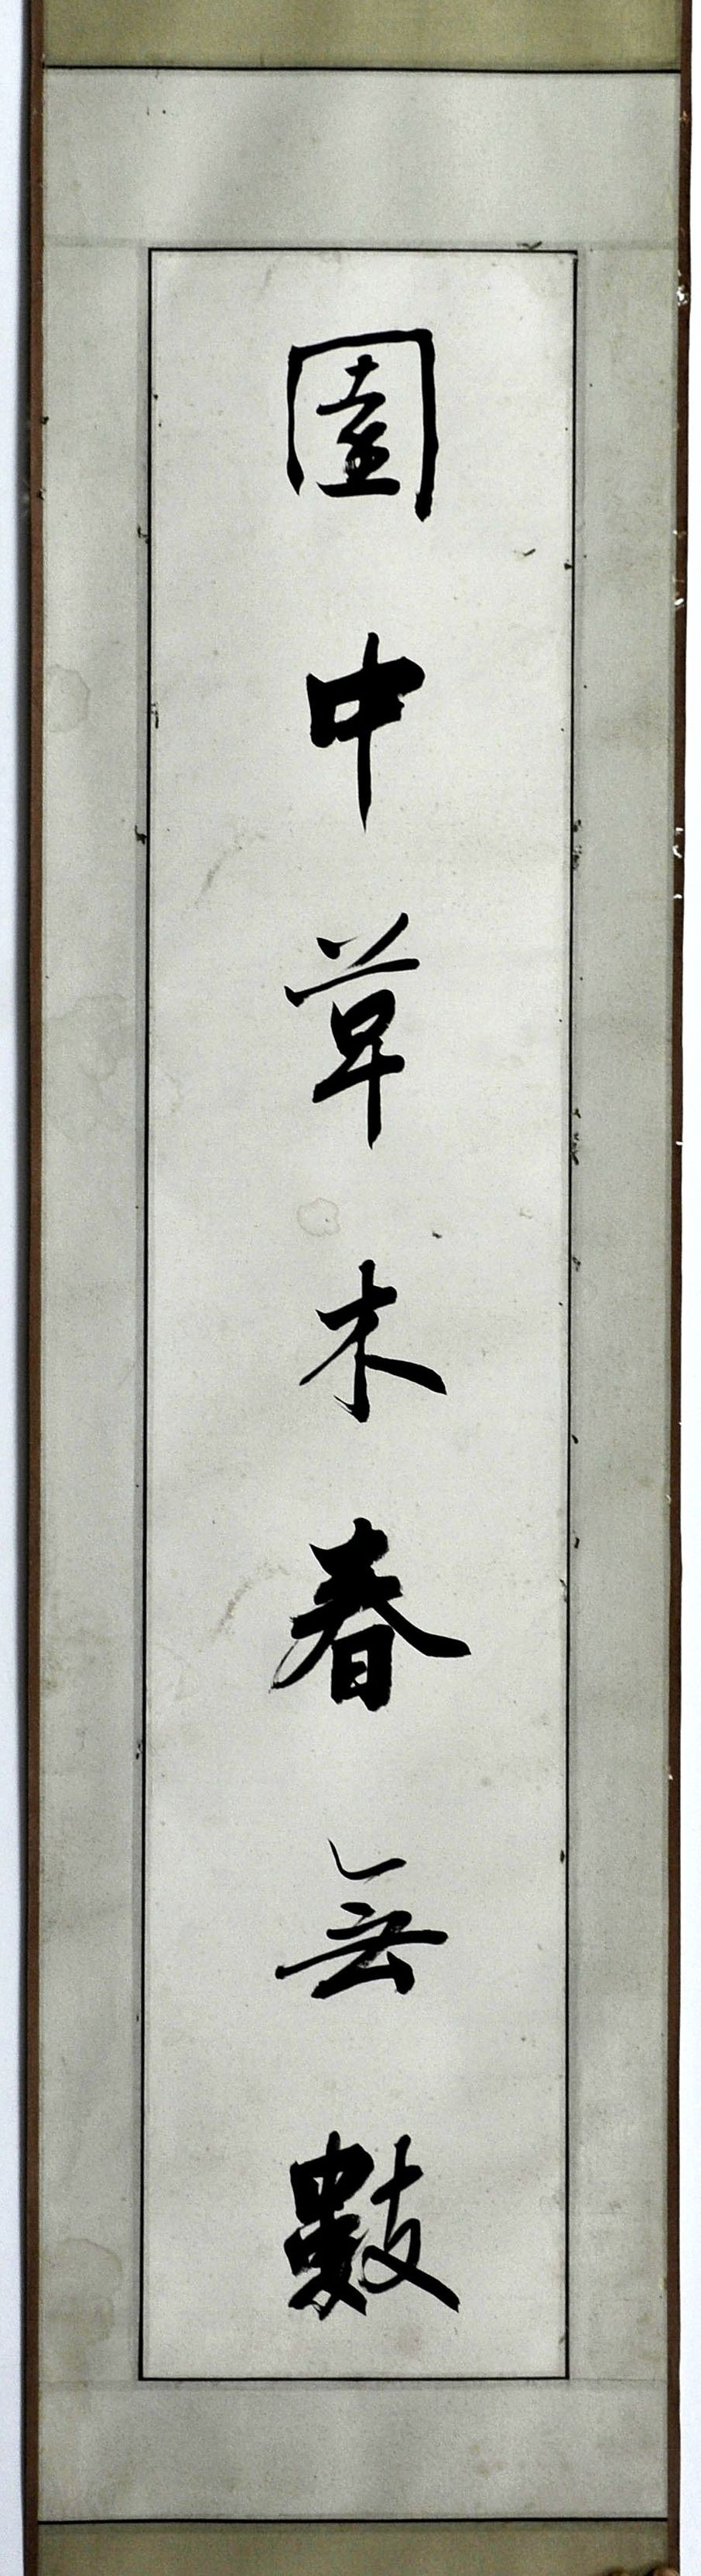 園中草木春無數